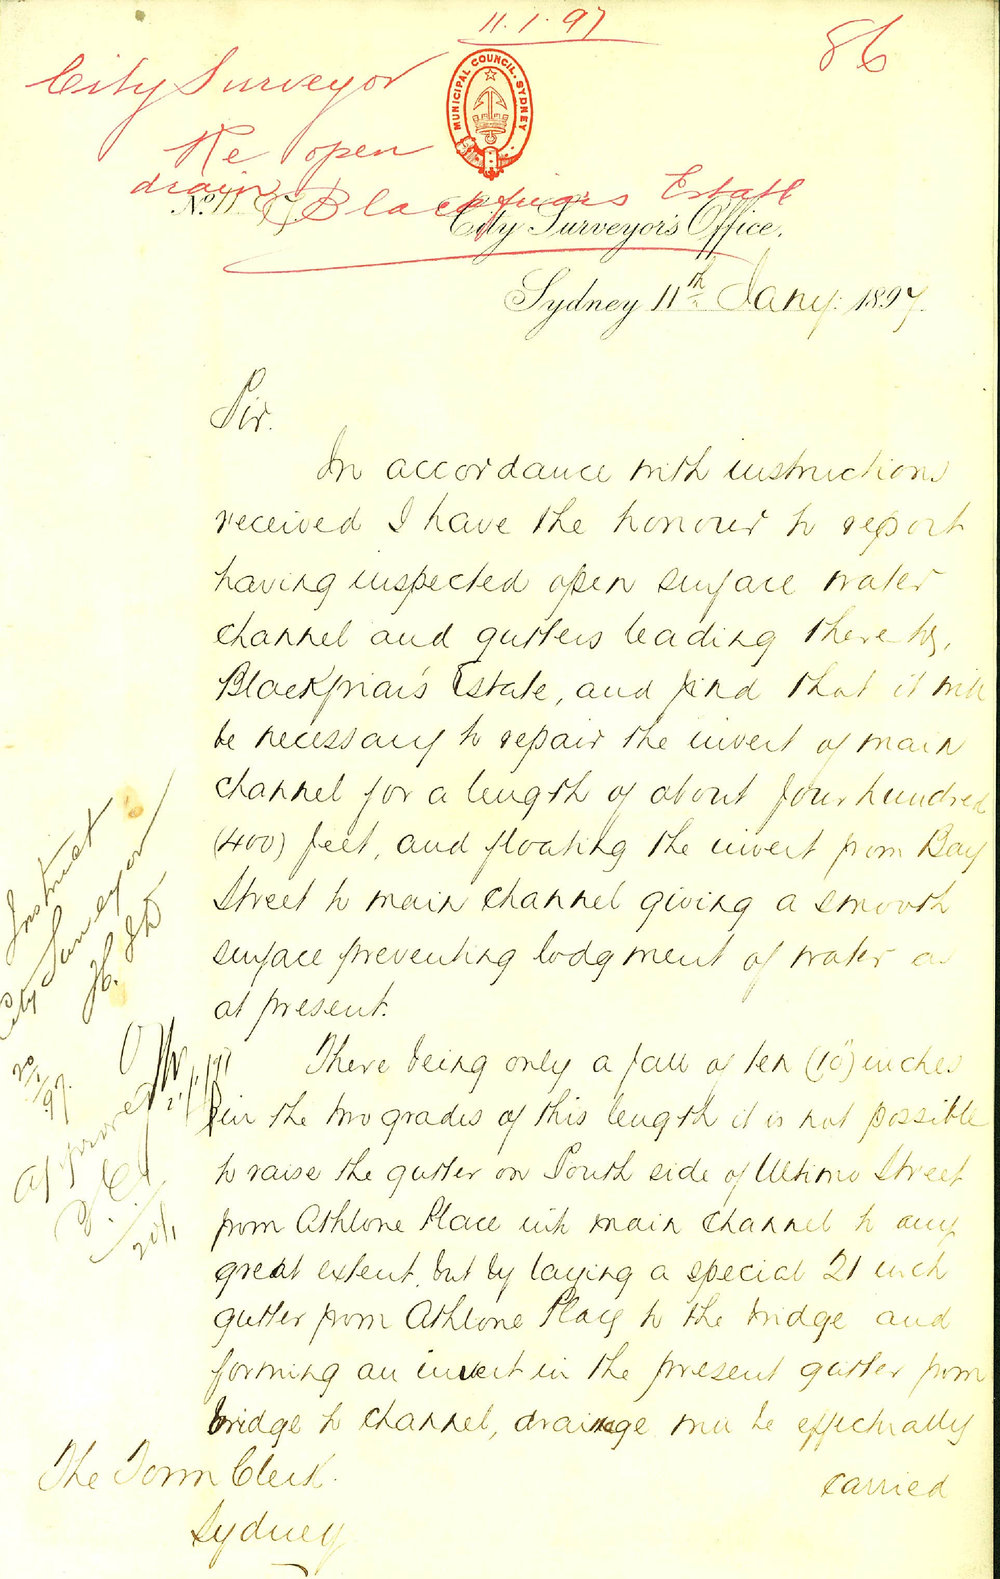 11.1.97
86
City Surveyor
Re open
drain Blackfriars Estate
MUNICIPAL COUNCIL. SYDNEY
No. 11
City Surveyor's Office.
Sydney 11th Jany. 1897.
Sir.
In accordance with instructions
received I have the honour to report
having inspected open surface water
channel and gutters leading thereto,
Blackfriar's Estate, and find that it will
be necessary to repair the invert of main
channel for a length of about four hundred
(400) feet, and floating the invert from Bay
Street to main channel giving a smooth
surface preventing lodgment of water as
at present.
There being only a fall of ten (10") inches
in the two grades of this length it is not possible
to raise the gutter on South side of Ultimo Street
from Athlone Place into main channel to any
great extent, but by laying a special 21 inch
gutter from Athlone Place to the bridge and
forming an invert in the present gutter from
bridge to channel, drainage will be effectually
carried
The Town Clerk.
Sydney
Instruct
City Surveyor
20/1/97
Approved
20/1